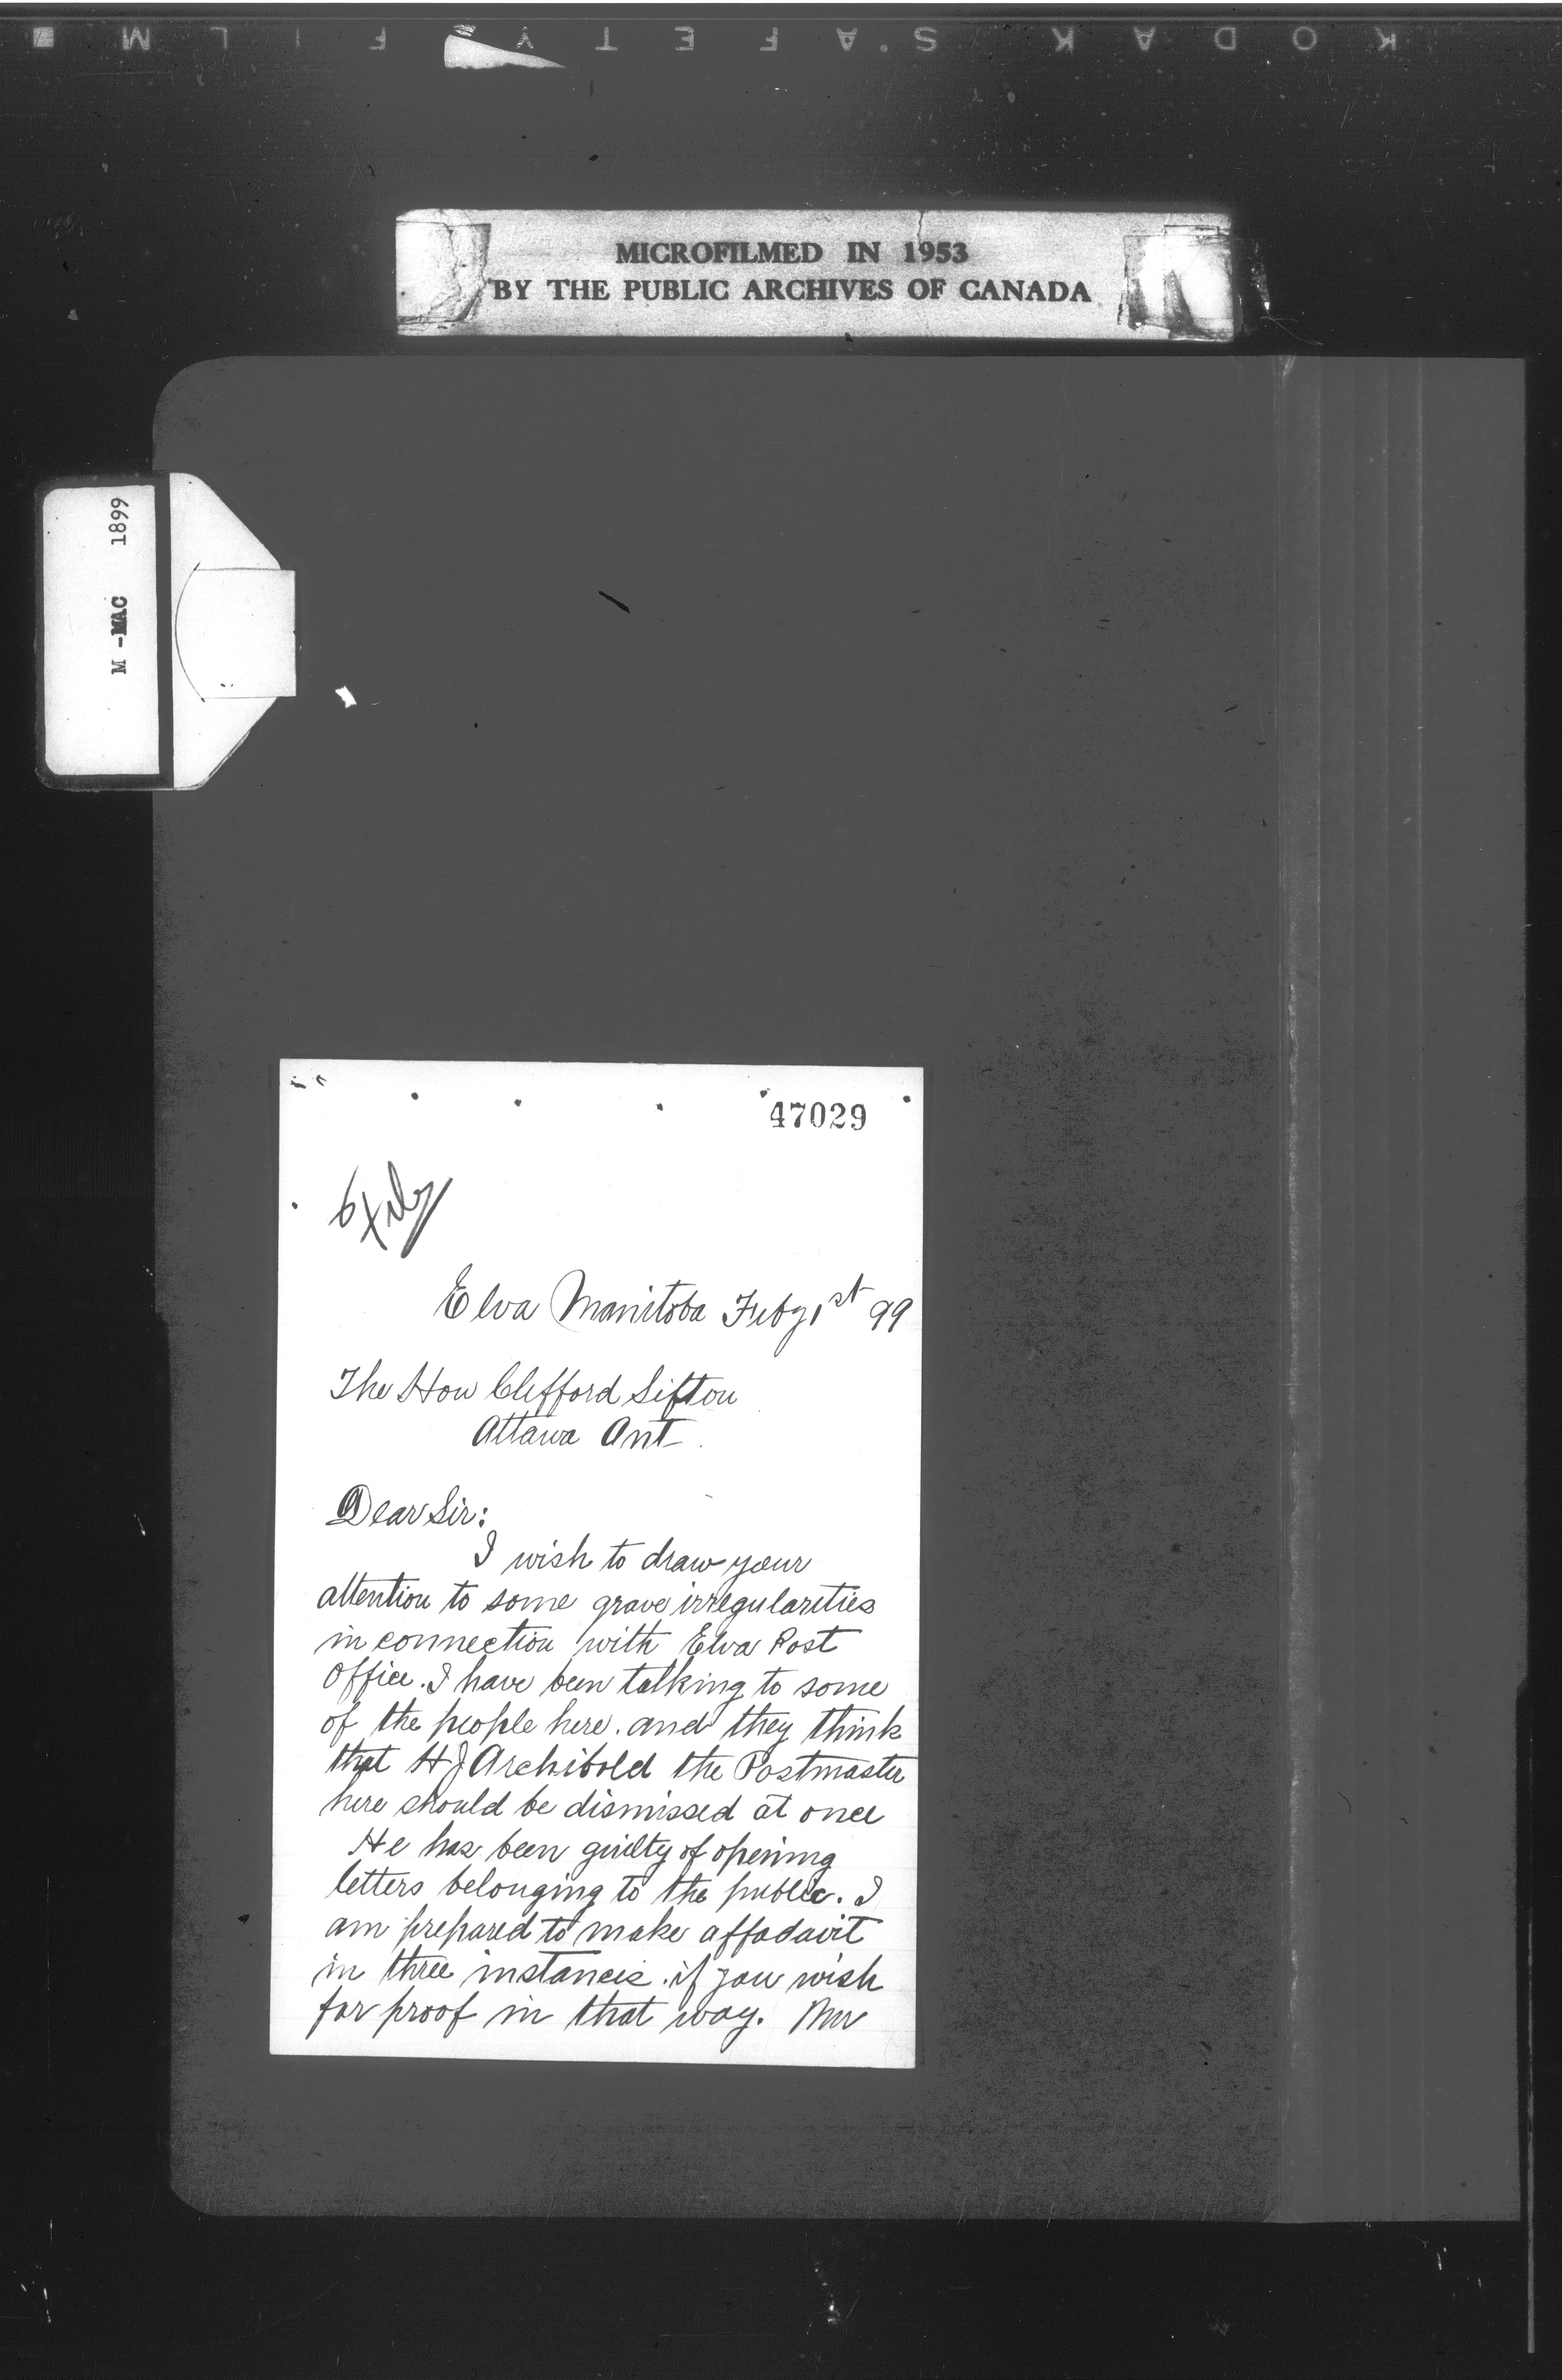 KODAK SAFETY FILM
MICROFILMED IN 1953
BY THE PUBLIC ARCHIVES OF CANADA
M -MAC 1899
47029
6 Feby
Elva Manitoba Feby 1st 99
The Hon Clifford Sifton
Ottawa Ont
Dear Sir:
I wish to draw your
attention to some grave irregularities
in connection with Elva Post
Office. I have been talking to some
of the people here. and they think
that H J Archibold the Postmaster
here should be dismissed at once
He has been guilty of opening
letters belonging to the public. I
am prepared to make affadavit
in three instances. if you wish
for proof in that way. Mr